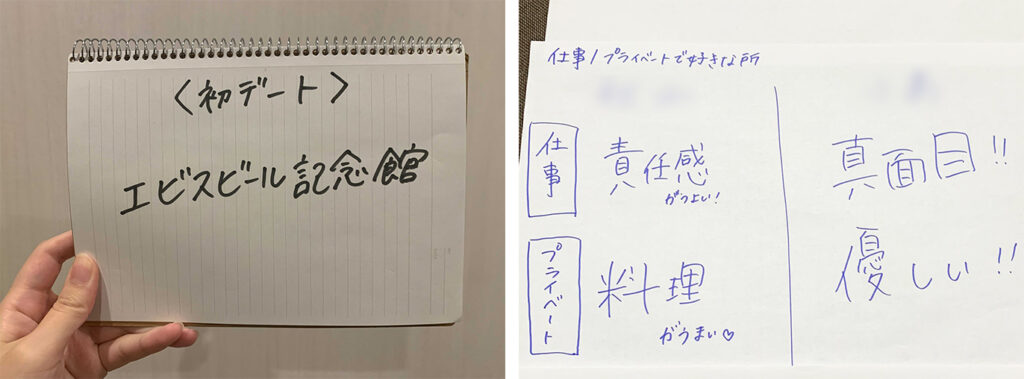 〈初デート〉
エビスビール記念館
仕事/プライベートで好きな所
仕事
責任感
がつよい!
真面目!!
プライベート
料理
がうまい♡
優しい!!